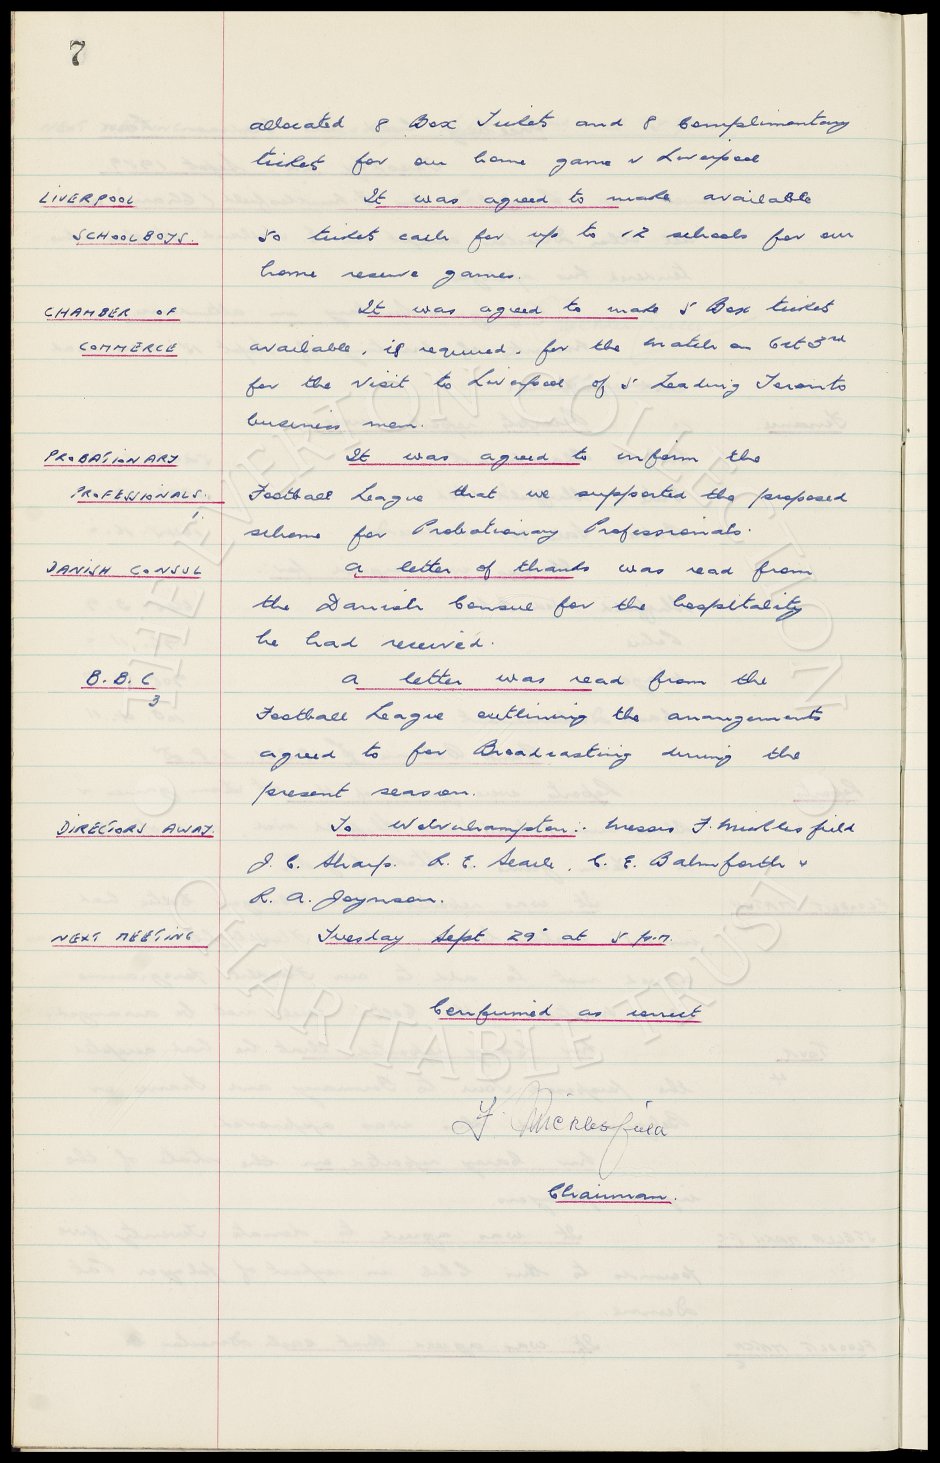 7
allocated 8 Box Tickets and 8 Complimentary
tickets for our home game v Liverpool
LIVERPOOL SCHOOLBOYS. It was agreed to make available
50 tickets each for up to 12 schools for our
home reserve games.
CHAMBER OF COMMERCE It was agreed to make 5 Box tickets
available, if required, for the match on Oct 3rd
for the visit to Liverpool of 5 Leading Toronto
business men.
PROBATIONARY PROFESSIONALS. 1 It was agreed to inform the
Football League that we supported the proposed
scheme for Probationary Professionals.
DANISH CONSUL A letter of thanks was read from
the Danish Consul for the hospitality
he had received.
B.B.C 3 A letter was read from the
Football League outlining the arrangements
agreed to for Broadcasting during the
present season.
DIRECTORS AWAY. To Wolverhampton:. Messrs F. Micklesfield
J. C. Sharp. R. E. Searle, C. E. Balmforth &
R. A. Joynson.
NEXT MEETING Tuesday Sept 29" at 5 p.m.
Confirmed as correct
F. Micklesfield
Chairman.
THE EVERTON COLLECTION
CHARITABLE TRUST